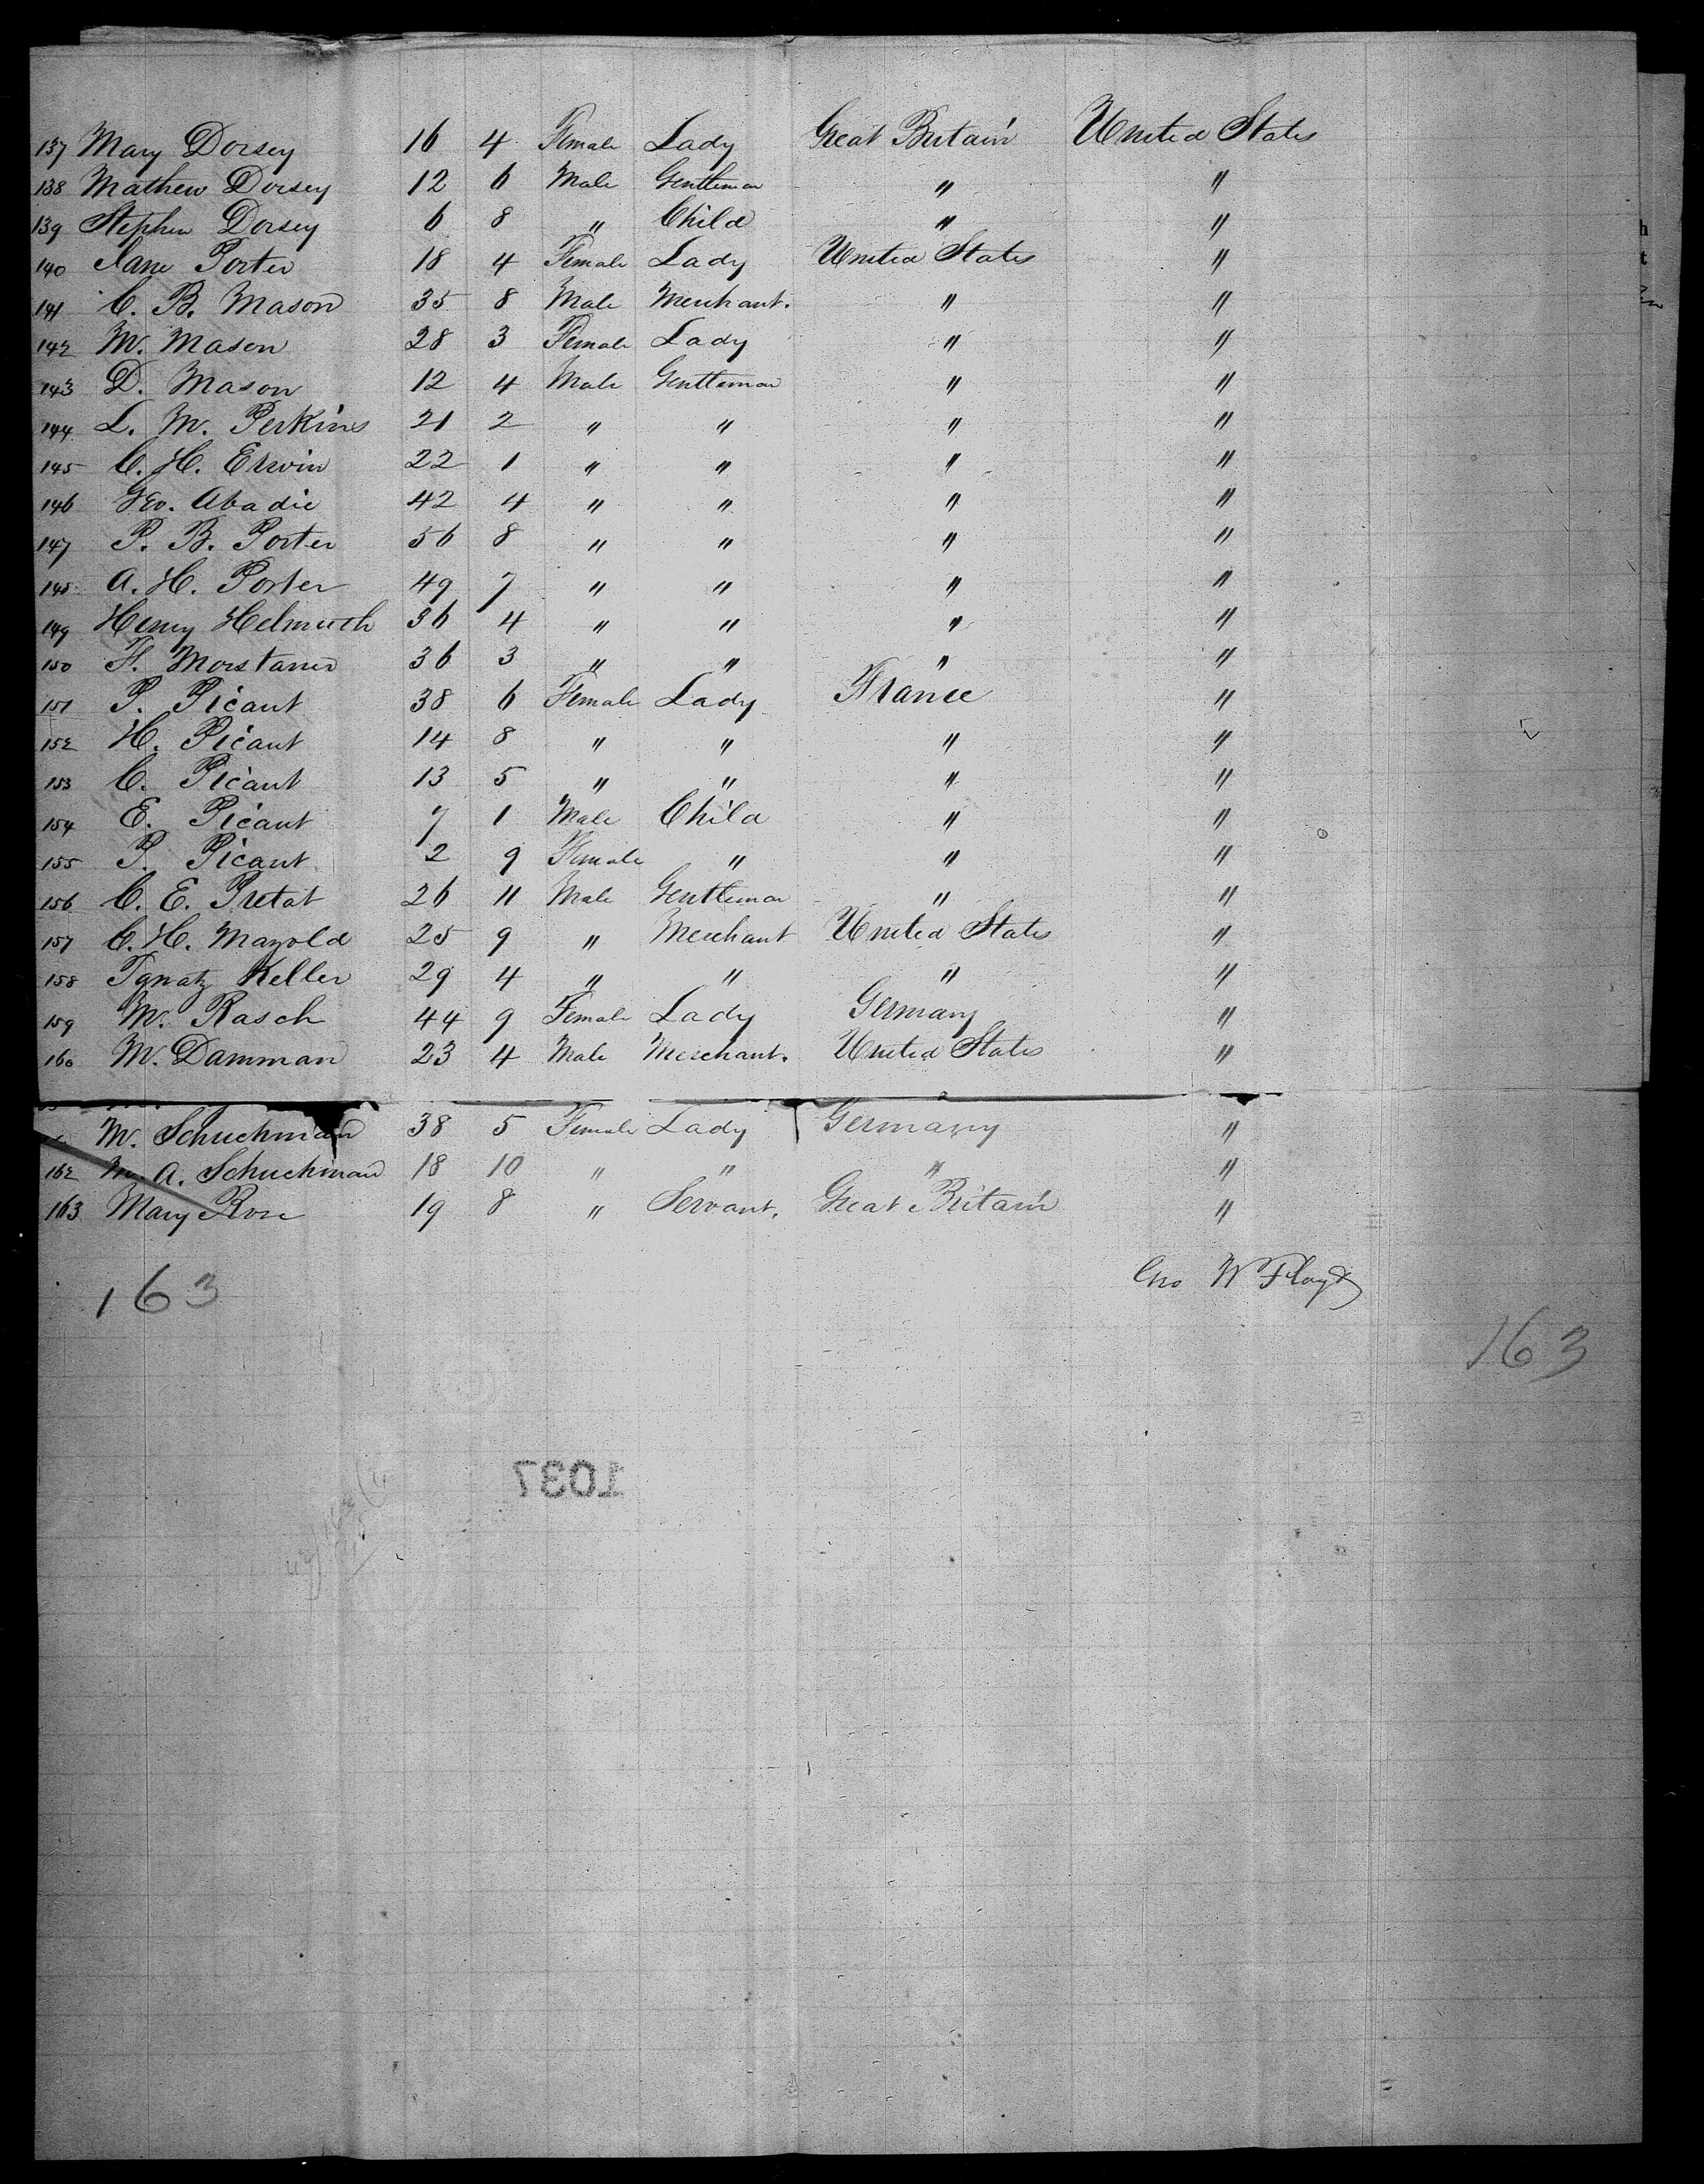 137 Mary Dorsey 16 4 Female Lady Great Britain United States
138 Mathew Dorsey 12 6 Male Gentleman " "
139 Stephen Dorsey 6 8 " Child " "
140 Jane Porter 18 4 Female Lady United States "
141 C. B. Mason 35 8 Male Merchant. " "
142 M. Mason 28 3 Female Lady " "
143 D. Mason 12 4 Male Gentleman " "
144 L. M. Perkins 21 2 " " " "
145 C. H. Erwin 22 1 " " " "
146 Geo. Abadie 42 4 " " " "
147 P. B. Porter 56 8 " " " "
148 A. H. Porter 49 7 " " " "
149 Henry Helmuth 36 4 " " " "
150 F. Morstaner 36 3 " " " "
151 P. Picaut 38 6 Female Lady France "
152 H. Picaut 14 8 " " " "
153 C. Picaut 13 5 " " " "
154 E. Picaut 7 1 Male Child " "
155 P. Picaut 2 9 Female " " "
156 C. E. Pretat 26 11 Male Gentleman " "
157 C. H. Mayold 25 9 " Merchant United States "
158 Ignatz Keller 29 4 " " " "
159 M. Rasch 44 9 Female Lady Germany "
160 M. Damman 23 4 Male Merchant. United States "
M. Schuchman 38 5 Female Lady Germany "
162 M. A. Schuchman 18 10 " " " "
163 Mary Rose 19 8 " Servant. Great Britain "
Geo W Floyd
163
163
1037